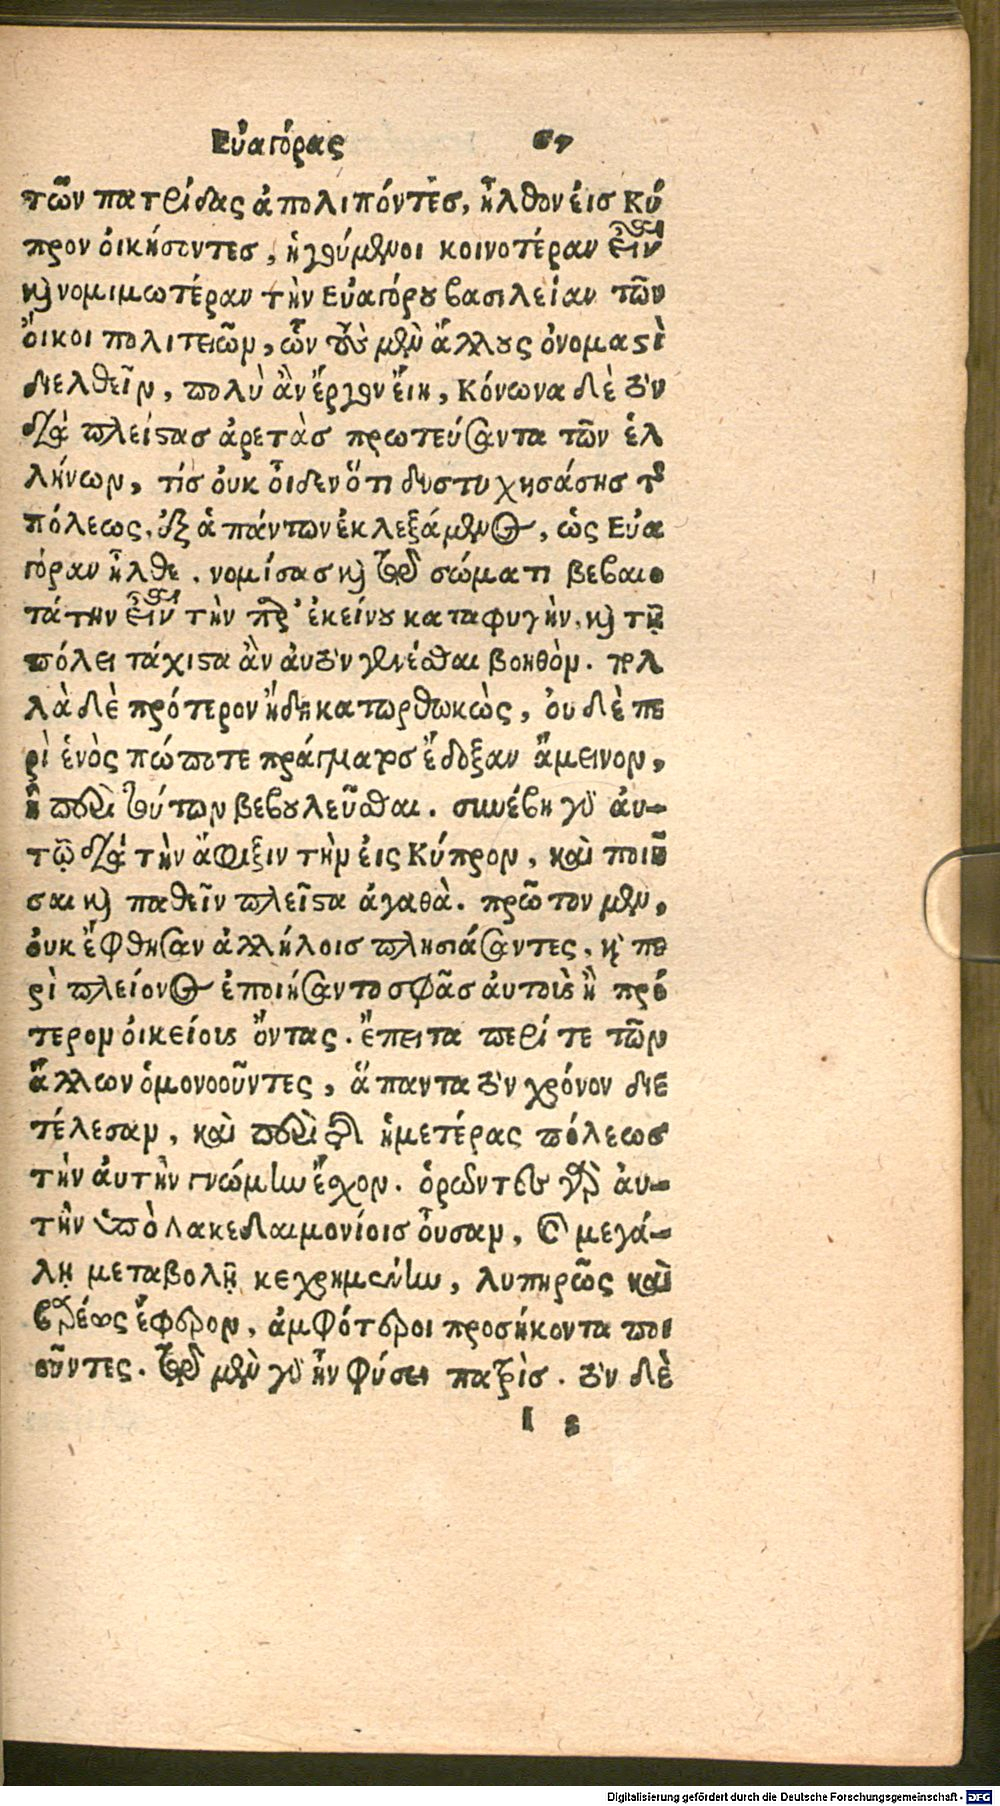 Εὐαγόρας 67
τῶν πατρίδας ἀπολιπόντες, ἦλθον εἰσ Κύ
προν οἰκήσοντες, ἡγούμενοι κοινοτέραν εἶναι
καὶ νομιμωτέραν τὴν Εὐαγόρου βασιλείαν τῶν
ὄικοι πολιτειῶν, ὧν τοὺς μὲν ἄλλους ὀνομαστὶ
διελθεῖν, πολὺ ἂν ἔργον ἔιη, Κόνωνα δὲ τὸν
διὰ πλείστασ ἀρετὰσ πρωτεύσαντα τῶν ἑλ
λήνων, τίσ ὀυκ ὶοἶδεν ὅτι δυστυχησάσησ τῆς
πόλεως, ἐξ ἁπάντων ἐκλεξάμενος, ὡς Εὐα
γόραν ἦλθε. νομίσασ καὶ τῷ σώματι βεβαιο
τάτην εἶναι τὴν πρὸς ἐκείνου καταφυγὴν, καὶ τῇ
πόλει τάχιστα ἂν ἀυτὸν γενέσθαι βοηθὸν. πολ
λὰ δὲ πρότερον ἤδη κατωρθωκὼς, ὀυδὲ πε
ρὶ ἑνὸς πώποτε πράγματοσ ἔδοξεν ἄμεινον,
ἢ περὶ τούτων βεβουλεῦσθαι. συνέβη γὰρ ἀυ-
τῷ διὰ τὴν ἄφιξιν τὴν εἰς Κύπρον, καὶ ποιῆ
σαι καὶ παθεῖν πλεῖστα ἀγαθὰ. πρῶτον μὲν,
ὀυκ ἔφθησαν ἀλλήλοισ πλησιάσαντες, καὶ πε
ρὶ πλείονος ἐποιήσαντο σφᾶσ ἀυτοὺς ἢ πρό
τερον ὀικείους ὄντας. ἔπειτα περί τε τῶν
ἄλλων ὁμονοοῦντες, ἅπαντα τὸν χρόνον διε
τέλεσαν, καὶ περὶ τῆς ἡμετέρας πόλεωσ
τὴν ἀυτὴν γνώμην ἔχον. ὁρῶντες γὰρ ἀυ-
τὴν ὑπὸ Λακεδαιμονίοισ ὀῦσαν, καὶ μεγά-
λῃ μεταβολῇ κεχρημένην, λυπηρῶς καὶ
βαρέως ἔφερον, ἀμφότεροι προσήκοντα ποι
οῦντες. τῷ μὲν γὰρ ἦν φύσει πατρὶσ. τὸν δὲ
I s
Digitalisierung gefördert durch die Deutsche Forschungsgemeinschaft - DFG